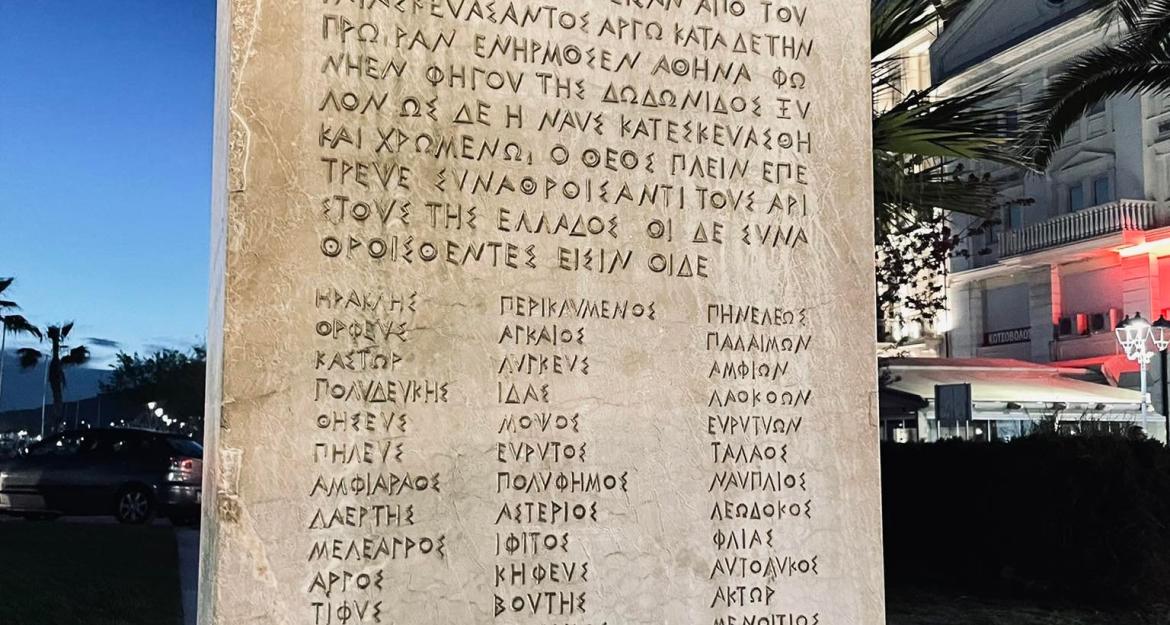 ΑΠΟ ΤΟΥ
ΚΑΤΑΣΚΕΥΑΣΑΝΤΟΣ ΑΡΓΩ ΚΑΤΑ ΔΕ ΤΗΝ
ΠΡΩΙΡΑΝ ΕΝΗΡΜΟΣΕΝ ΑΘΗΝΑ ΦΩ
ΝΗΕΝ ΦΗΓΟΥ ΤΗΣ ΔΩΔΩΝΙΔΟΣ ΞΥ
ΛΟΝ ΩΣ ΔΕ Η ΝΑΥΣ ΚΑΤΕΣΚΕΥΑΣΘΗ
ΚΑΙ ΧΡΩΜΕΝΩΙ Ο ΘΕΟΣ ΠΛΕΙΝ ΕΠΕ
ΤΡΕΨΕ ΣΥΝΑΘΡΟΙΣΑΝΤΙ ΤΟΥΣ ΑΡΙ
ΣΤΟΥΣ ΤΗΣ ΕΛΛΑΔΟΣ ΟΙ ΔΕ ΣΥΝΑ
ΘΡΟΙΣΘΕΝΤΕΣ ΕΙΣΙΝ ΟΙΔΕ
ΗΡΑΚΛΗΣ
ΟΡΦΕΥΣ
ΚΑΣΤΩΡ
ΠΟΛΥΔΕΥΚΗΣ
ΘΗΣΕΥΣ
ΠΗΛΕΥΣ
ΑΜΦΙΑΡΑΟΣ
ΛΑΕΡΤΗΣ
ΜΕΛΕΑΓΡΟΣ
ΑΡΓΟΣ
ΤΙΦΥΣ
ΠΕΡΙΚΛΥΜΕΝΟΣ
ΑΓΚΑΙΟΣ
ΛΥΓΚΕΥΣ
ΙΔΑΣ
ΜΟΨΟΣ
ΕΥΡΥΤΟΣ
ΠΟΛΥΦΗΜΟΣ
ΑΣΤΕΡΙΟΣ
ΙΦΙΤΟΣ
ΚΗΦΕΥΣ
ΒΟΥΤΗΣ
ΠΗΝΕΛΕΩΣ
ΠΑΛΑΙΜΩΝ
ΑΜΦΙΩΝ
ΛΑΟΚΟΩΝ
ΕΥΡΥΤΙΩΝ
ΤΑΛΑΟΣ
ΝΑΥΠΛΙΟΣ
ΛΕΩΔΟΚΟΣ
ΦΛΙΑΣ
ΑΥΤΟΛΥΚΟΣ
ΑΚΤΩΡ
ΜΕΝΟΙΤΙΟΣ
ΚΩΤΣΟΒΟΛΟΣ